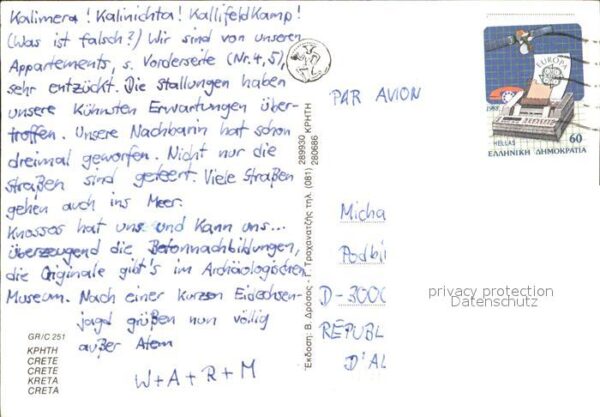 Kalimera! Kalinichta! Kallifeldkamp!
(Was ist falsch?) Wir sind von unseren
Appartements, s. Vorderseite (Nr. 4, 5),
sehr entzückt. Die Stallungen haben
unsere kühnsten Erwartungen über-
troffen. Unsere Nachbarin hat schon
dreimal geworfen. Nicht nur die
Straßen sind geteert. Viele Straßen
gehen auch ins Meer.
Knossos hat uns und kann uns...
überzeugend die Betonnachbildungen,
die Originale gibt's im Archäologischen
Museum. Nach einer kurzen Eidechsen-
jagd grüßen nun völlig
außer Atem
W+A+R+M
GR/C 251
ΚΡΗΤΗ
CRETE
CRETE
KRETA
CRETA
Έκδοση: Β. Δρόσος - Γ. Τραχανατζής τηλ. (081) 289930 ΚΡΗΤΗ
280686
PAR AVION
EUROPA
1988
HELLAS
60
ΕΛΛΗΝΙΚΗ ΔΗΜΟΚΡΑΤΙΑ
Micha
Podbi
D-3000
REPUBL
D'AL
privacy protection
Datenschutz